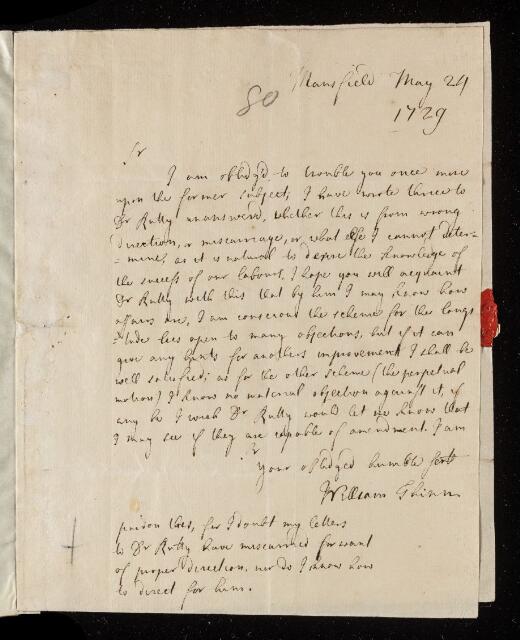 80
Mansfield May 24
1729
Sr
I am oblidg'd to trouble you once more
upon the former subject; I have wrote thrice to
Dr Rutty unanswerd, whether this is from wrong
direction, or miscarriage, or what else I cannot deter=
=mine, as it is natural to desire the knowledge of
the success of our labour, I hope you will acquaint
Dr Rutty with this that by him I may know how
affairs are, I am conscious the scheme for the longi
tude lies open to many objections, but if it can
give any hints for anothers improvement I shall be
well satisfied; as for the other scheme (the perpetual
motion) I know no material objection against it, if
any be I wish Dr Rutty would let me know that
I may see if they are capable of amendment. I am
Sr
Your oblidged humble Servt
William
pardon this, for I doubt my letters
to Dr Rutty have miscarried for want
of proper direction, nor do I know how
to direct for him.